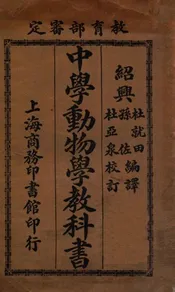 教育部審定
紹興
杜就田
孫佐
編譯
杜亞泉校訂
中學動物學教科書
上海商務印書館印行